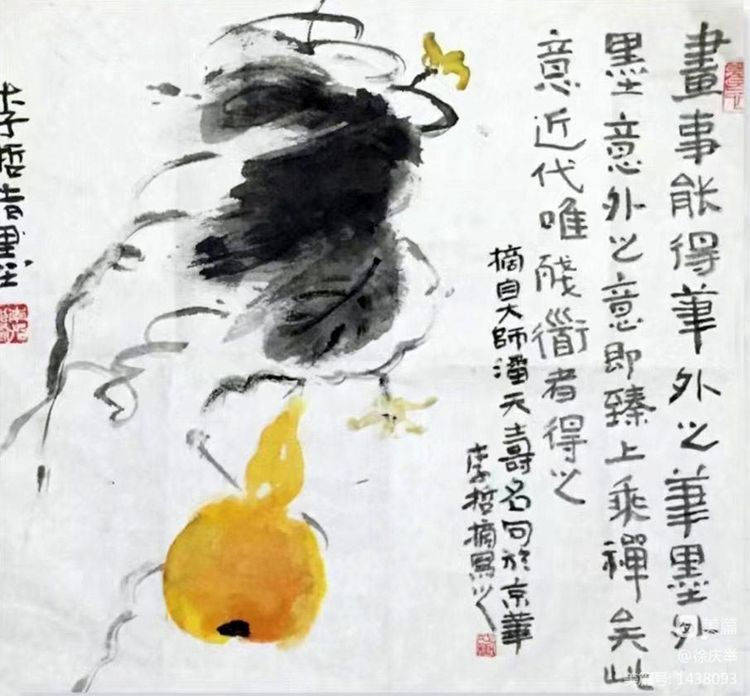 畫事能得筆外之筆墨外
墨意外之意即臻上乘禪矣此
意近代唯殘衟者得之
摘自大師潘天壽名句於京華
李哲摘寫之
李哲墨
美篇
@徐庆举
美篇号: 1438093